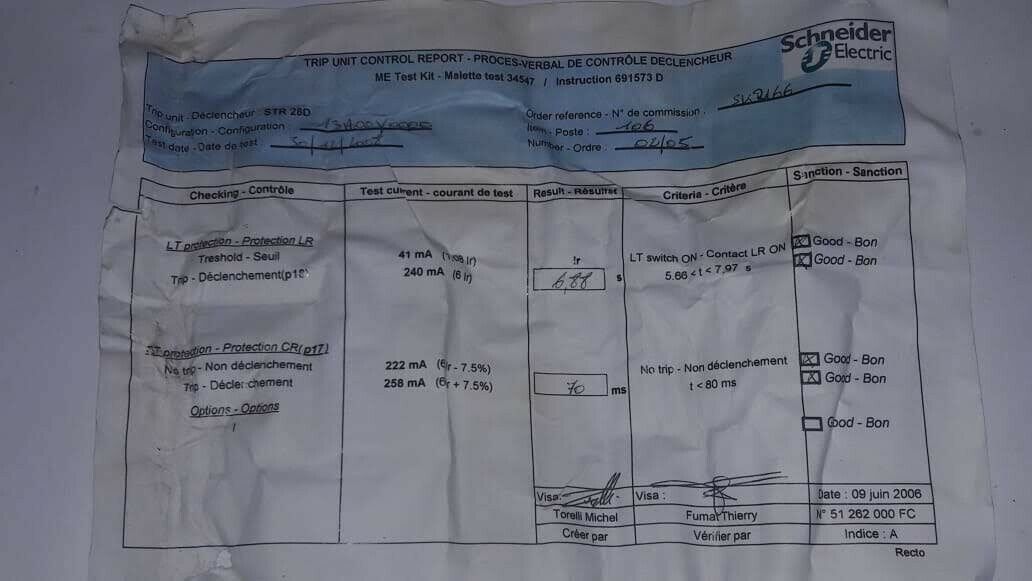 Schneider
Electric
TRIP UNIT CONTROL REPORT - PROCES-VERBAL DE CONTRÔLE DÉCLENCHEUR
ME Test Kit - Malette test 34547 / Instruction 691573 D
Trip unit - Déclencheur : STR 28D
Configuration - Configuration :
Test date - Date de test :
Order reference - N° de commission :
Item - Poste : 106
Number - Ordre : 04/05
Checking - Contrôle
Test current - courant de test
Result - Résultat
Criteria - Critère
Sanction - Sanction
LT protection - Protection LR
Treshold - Seuil 41 mA Ir LT switch ON - Contact LR ON Good - Bon
Trip - Déclenchement(p18) 240 mA (6 Ir) 6,88 s 5.66 < t < 7,97 s Good - Bon
protection - Protection CR(p17)
No trip - Non déclenchement 222 mA (6Ir - 7.5%) No trip - Non déclenchement Good - Bon
Trip - Déclenchement 258 mA (6Ir + 7.5%) 70 ms t < 80 ms Good - Bon
Options - Options
/ Good - Bon
Visa: Visa : Date : 09 juin 2006
Torelli Michel Fumat Thierry N° 51 262 000 FC
Créer par Vérifier par Indice : A
Recto